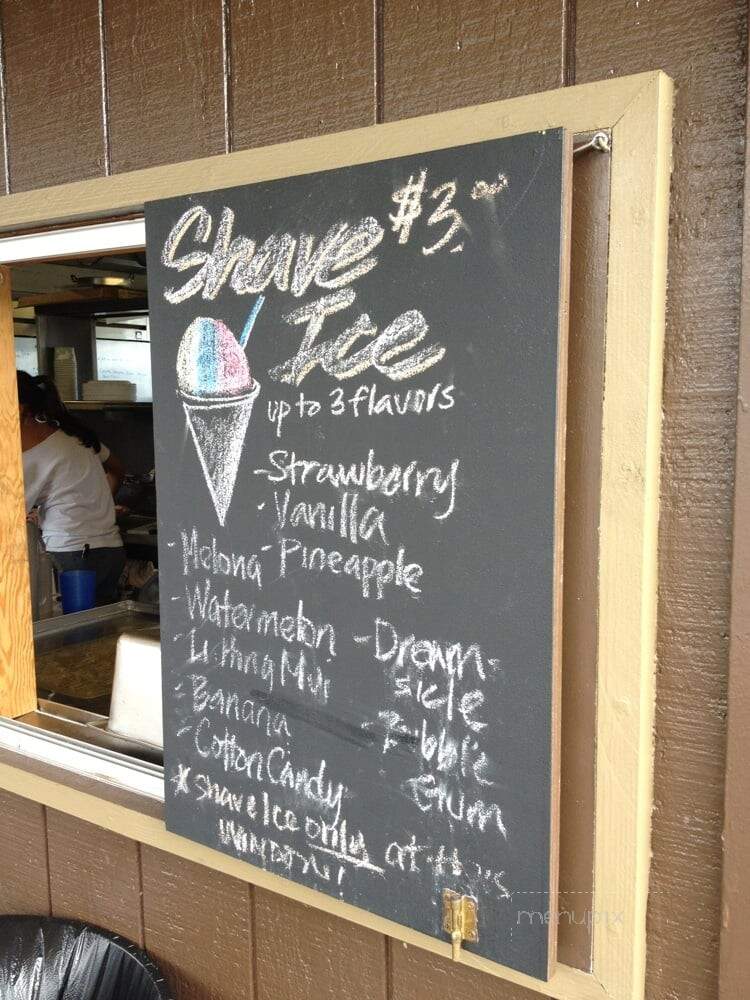 Shave $3.00
Ice
up to 3 flavors
-Strawberry
-Vanilla
-Melona -Pineapple
-Watermelon
-Li Hing Mui
-Banana
-Cotton Candy
-Dream-
sicle
-Bubble
Gum
*Shave Ice only at this
window!
menupix